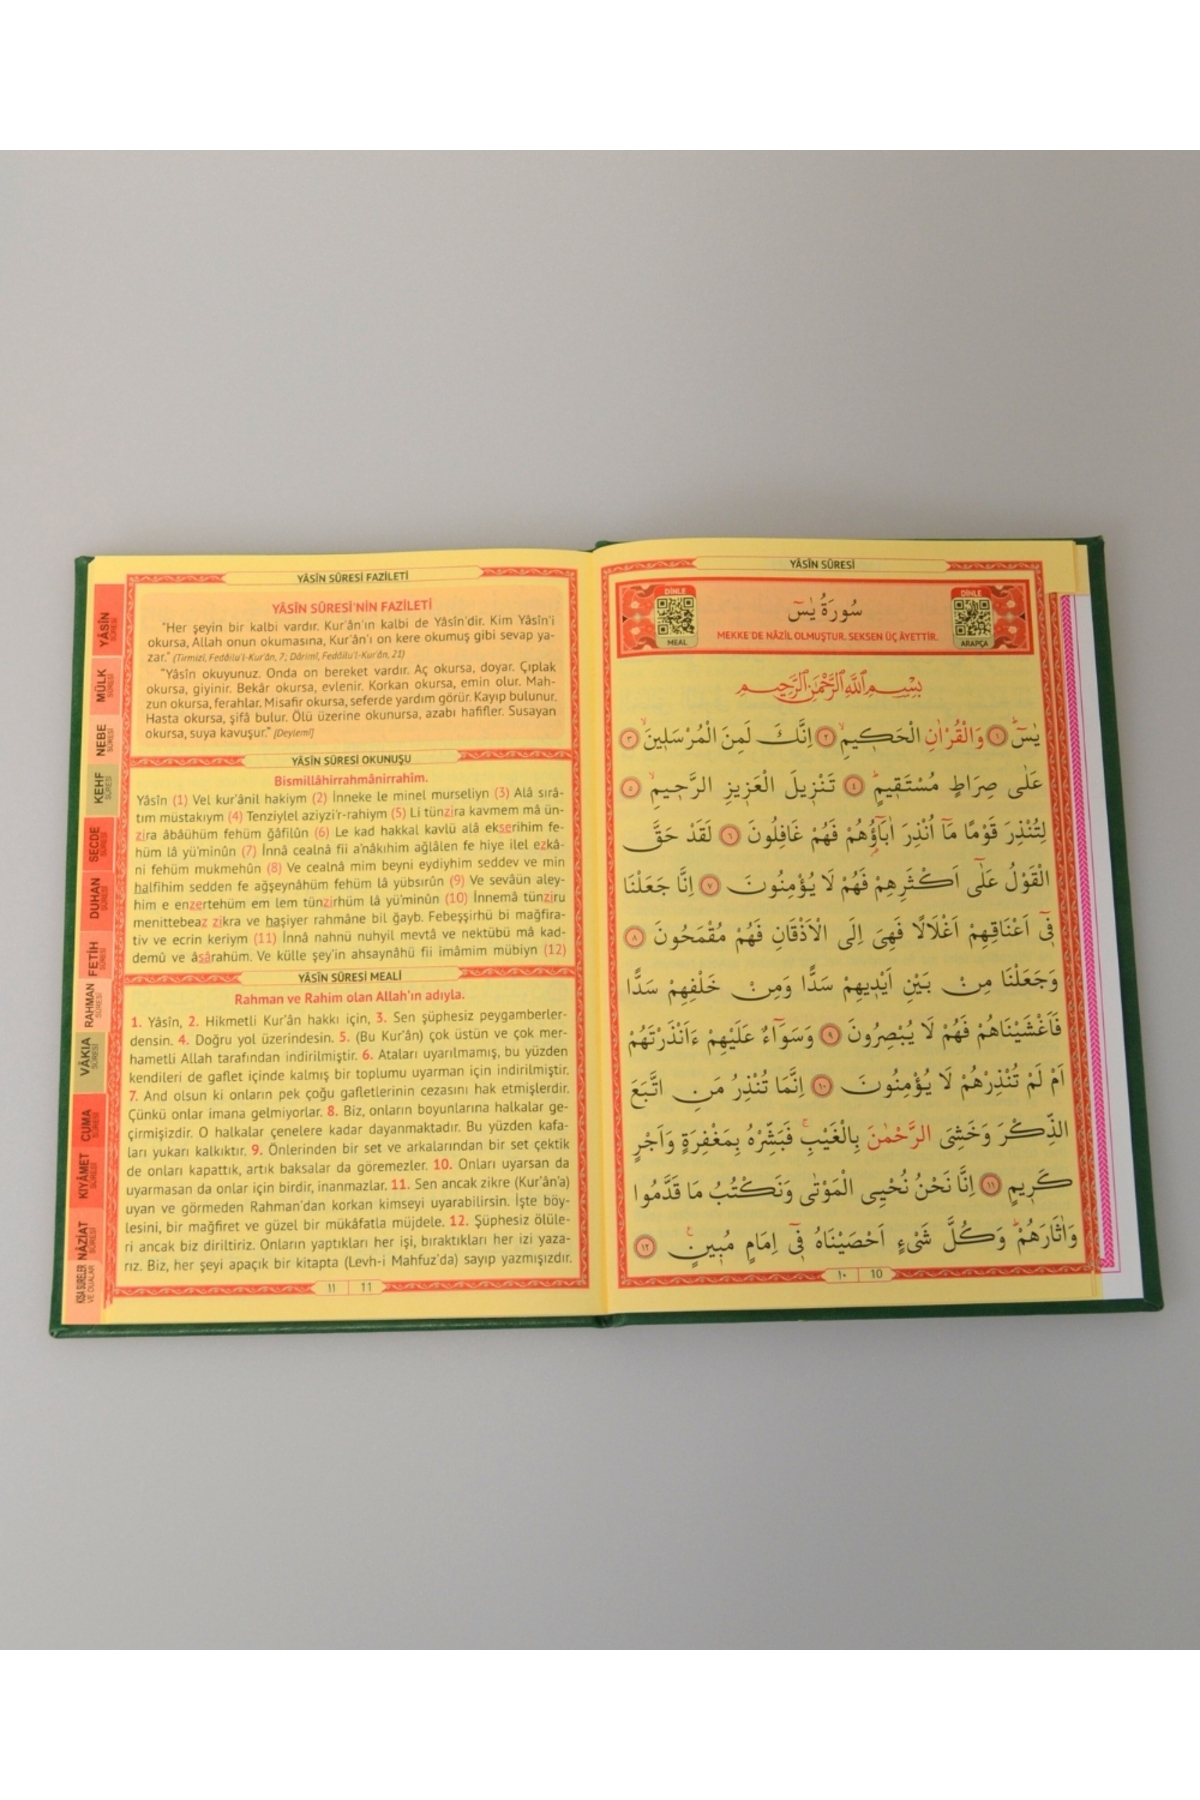 YÂSÎN SÛRESİ
DİNLE
MEAL
سُورَةُ يٰسٓ
MEKKE'DE NÂZİL OLMUŞTUR. SEKSEN ÜÇ ÂYETTİR.
DİNLE
ARAPÇA
بِسْمِ اللّٰهِ الرَّحْمٰنِ الرَّحِيمِ
يٰسٓۜ ﴿١﴾ وَالْقُرْاٰنِ الْحَك۪يمِۙ ﴿٢﴾ اِنَّكَ لَمِنَ الْمُرْسَل۪ينَۙ ﴿٣﴾
عَلٰى صِرَاطٍ مُسْتَق۪يمٍۜ ﴿٤﴾ تَنْز۪يلَ الْعَز۪يزِ الرَّح۪يمِۙ ﴿٥﴾
لِتُنْذِرَ قَوْمًا مَٓا اُنْذِرَ اٰبَٓاؤُ۬هُمْ فَهُمْ غَافِلُونَ ﴿٦﴾ لَقَدْ حَقَّ
الْقَوْلُ عَلٰٓى اَكْثَرِهِمْ فَهُمْ لَا يُؤْمِنُونَ ﴿٧﴾ اِنَّا جَعَلْنَا
ف۪ٓي اَعْنَاقِهِمْ اَغْلَالًا فَهِيَ اِلَى الْاَذْقَانِ فَهُمْ مُقْمَحُونَ ﴿٨﴾
وَجَعَلْنَا مِنْ بَيْنِ اَيْد۪يهِمْ سَدًّا وَمِنْ خَلْفِهِمْ سَدًّا
فَاَغْشَيْنَاهُمْ فَهُمْ لَا يُبْصِرُونَ ﴿٩﴾ وَسَوَٓاءٌ عَلَيْهِمْ ءَاَنْذَرْتَهُمْ
اَمْ لَمْ تُنْذِرْهُمْ لَا يُؤْمِنُونَ ﴿١٠﴾ اِنَّمَا تُنْذِرُ مَنِ اتَّبَعَ
الذِّكْرَ وَخَشِيَ الرَّحْمٰنَ بِالْغَيْبِۚ فَبَشِّرْهُ بِمَغْفِرَةٍ وَاَجْرٍ
كَر۪يمٍ ﴿١١﴾ اِنَّا نَحْنُ نُحْيِي الْمَوْتٰى وَنَكْتُبُ مَا قَدَّمُوا
وَاٰثَارَهُمْۜ وَكُلَّ شَيْءٍ اَحْصَيْنَاهُ ف۪ٓي اِمَامٍ مُب۪ينٍ۟ ﴿١٢﴾
١٠ 10
YÂSÎN SÛRESİ FAZİLETİ
YÂSÎN SÛRESİ'NİN FAZİLETİ
"Her şeyin bir kalbi vardır. Kur'ân'ın kalbi de Yâsîn'dir. Kim Yâsîn'i
okursa, Allah onun okumasına, Kur'ân'ı on kere okumuş gibi sevap ya-
zar." (Tirmizî, Fedâilu'l-Kur'ân, 7; Dârimî, Fedâilu'l-Kur'ân, 21)
"Yâsîn okuyunuz. Onda on bereket vardır. Aç okursa, doyar. Çıplak
okursa, giyinir. Bekâr okursa, evlenir. Korkan okursa, emin olur. Mah-
zun okursa, ferahlar. Misafir okursa, seferde yardım görür. Kayıp bulunur.
Hasta okursa, şifâ bulur. Ölü üzerine okunursa, azabı hafifler. Susayan
okursa, suya kavuşur." [Deylemî]
YÂSÎN SÛRESİ OKUNUŞU
Bismillâhirrahmânirrahîm.
Yâsîn (1) Vel kur'ânil hakiym (2) İnneke le minel murseliyn (3) Alâ sırâ-
tım müstakıym (4) Tenziylel aziyzi'r-rahiym (5) Li tünzira kavmem mâ ün-
zira âbâühüm fehüm ğâfilûn (6) Le kad hakkal kavlü alâ ekserihim fe-
hüm lâ yü'minûn (7) İnnâ cealnâ fii a'nâkıhim ağlâlen fe hiye ilel ezkâ-
ni fehüm mukmehûn (8) Ve cealnâ mim beyni eydiyhim seddev ve min
halfihim sedden fe ağşeynâhüm fehüm lâ yübsırûn (9) Ve sevâün aley-
him e enzertehüm em lem tünzirhüm lâ yü'minûn (10) İnnemâ tünziru
menittebeaz zikra ve haşiyer rahmâne bil ğayb. Febeşşirhü bi mağfira-
tiv ve ecrin keriym (11) İnnâ nahnü nuhyil mevtâ ve nektübü mâ kad-
demû ve âsârahüm. Ve külle şey'in ahsaynâhü fii imâmim mübiyn (12)
YÂSÎN SÛRESİ MEALİ
Rahman ve Rahim olan Allah'ın adıyla.
1. Yâsîn, 2. Hikmetli Kur'ân hakkı için, 3. Sen şüphesiz peygamberler-
densin. 4. Doğru yol üzerindesin. 5. (Bu Kur'ân) çok üstün ve çok mer-
hametli Allah tarafından indirilmiştir. 6. Ataları uyarılmamış, bu yüzden
kendileri de gaflet içinde kalmış bir toplumu uyarman için indirilmiştir.
7. And olsun ki onların pek çoğu gafletlerinin cezasını hak etmişlerdir.
Çünkü onlar imana gelmiyorlar. 8. Biz, onların boyunlarına halkalar ge-
çirmişizdir. O halkalar çenelere kadar dayanmaktadır. Bu yüzden kafa-
ları yukarı kalkıktır. 9. Önlerinden bir set ve arkalarından bir set çektik
de onları kapattık, artık baksalar da göremezler. 10. Onları uyarsan da
uyarmasan da onlar için birdir, inanmazlar. 11. Sen ancak zikre (Kur'ân'a)
uyan ve görmeden Rahman'dan korkan kimseyi uyarabilirsin. İşte böy-
lesini, bir mağfiret ve güzel bir mükâfatla müjdele. 12. Şüphesiz ölüle-
ri ancak biz diriltiriz. Onların yaptıkları her işi, bıraktıkları her izi yaza-
rız. Biz, her şeyi apaçık bir kitapta (Levh-i Mahfuz'da) sayıp yazmışızdır.
١١ 11
YÂSÎN SÛRESİ
MÜLK SÛRESİ
NEBE SÛRESİ
KEHF SÛRESİ
SECDE SÛRESİ
DUHAN SÛRESİ
FETİH SÛRESİ
RAHMAN SÛRESİ
VÂKIA SÛRESİ
CUMA SÛRESİ
KIYÂMET SÛRESİ
NÂZİAT SÛRESİ
KISA SÛRELER VE DUALAR